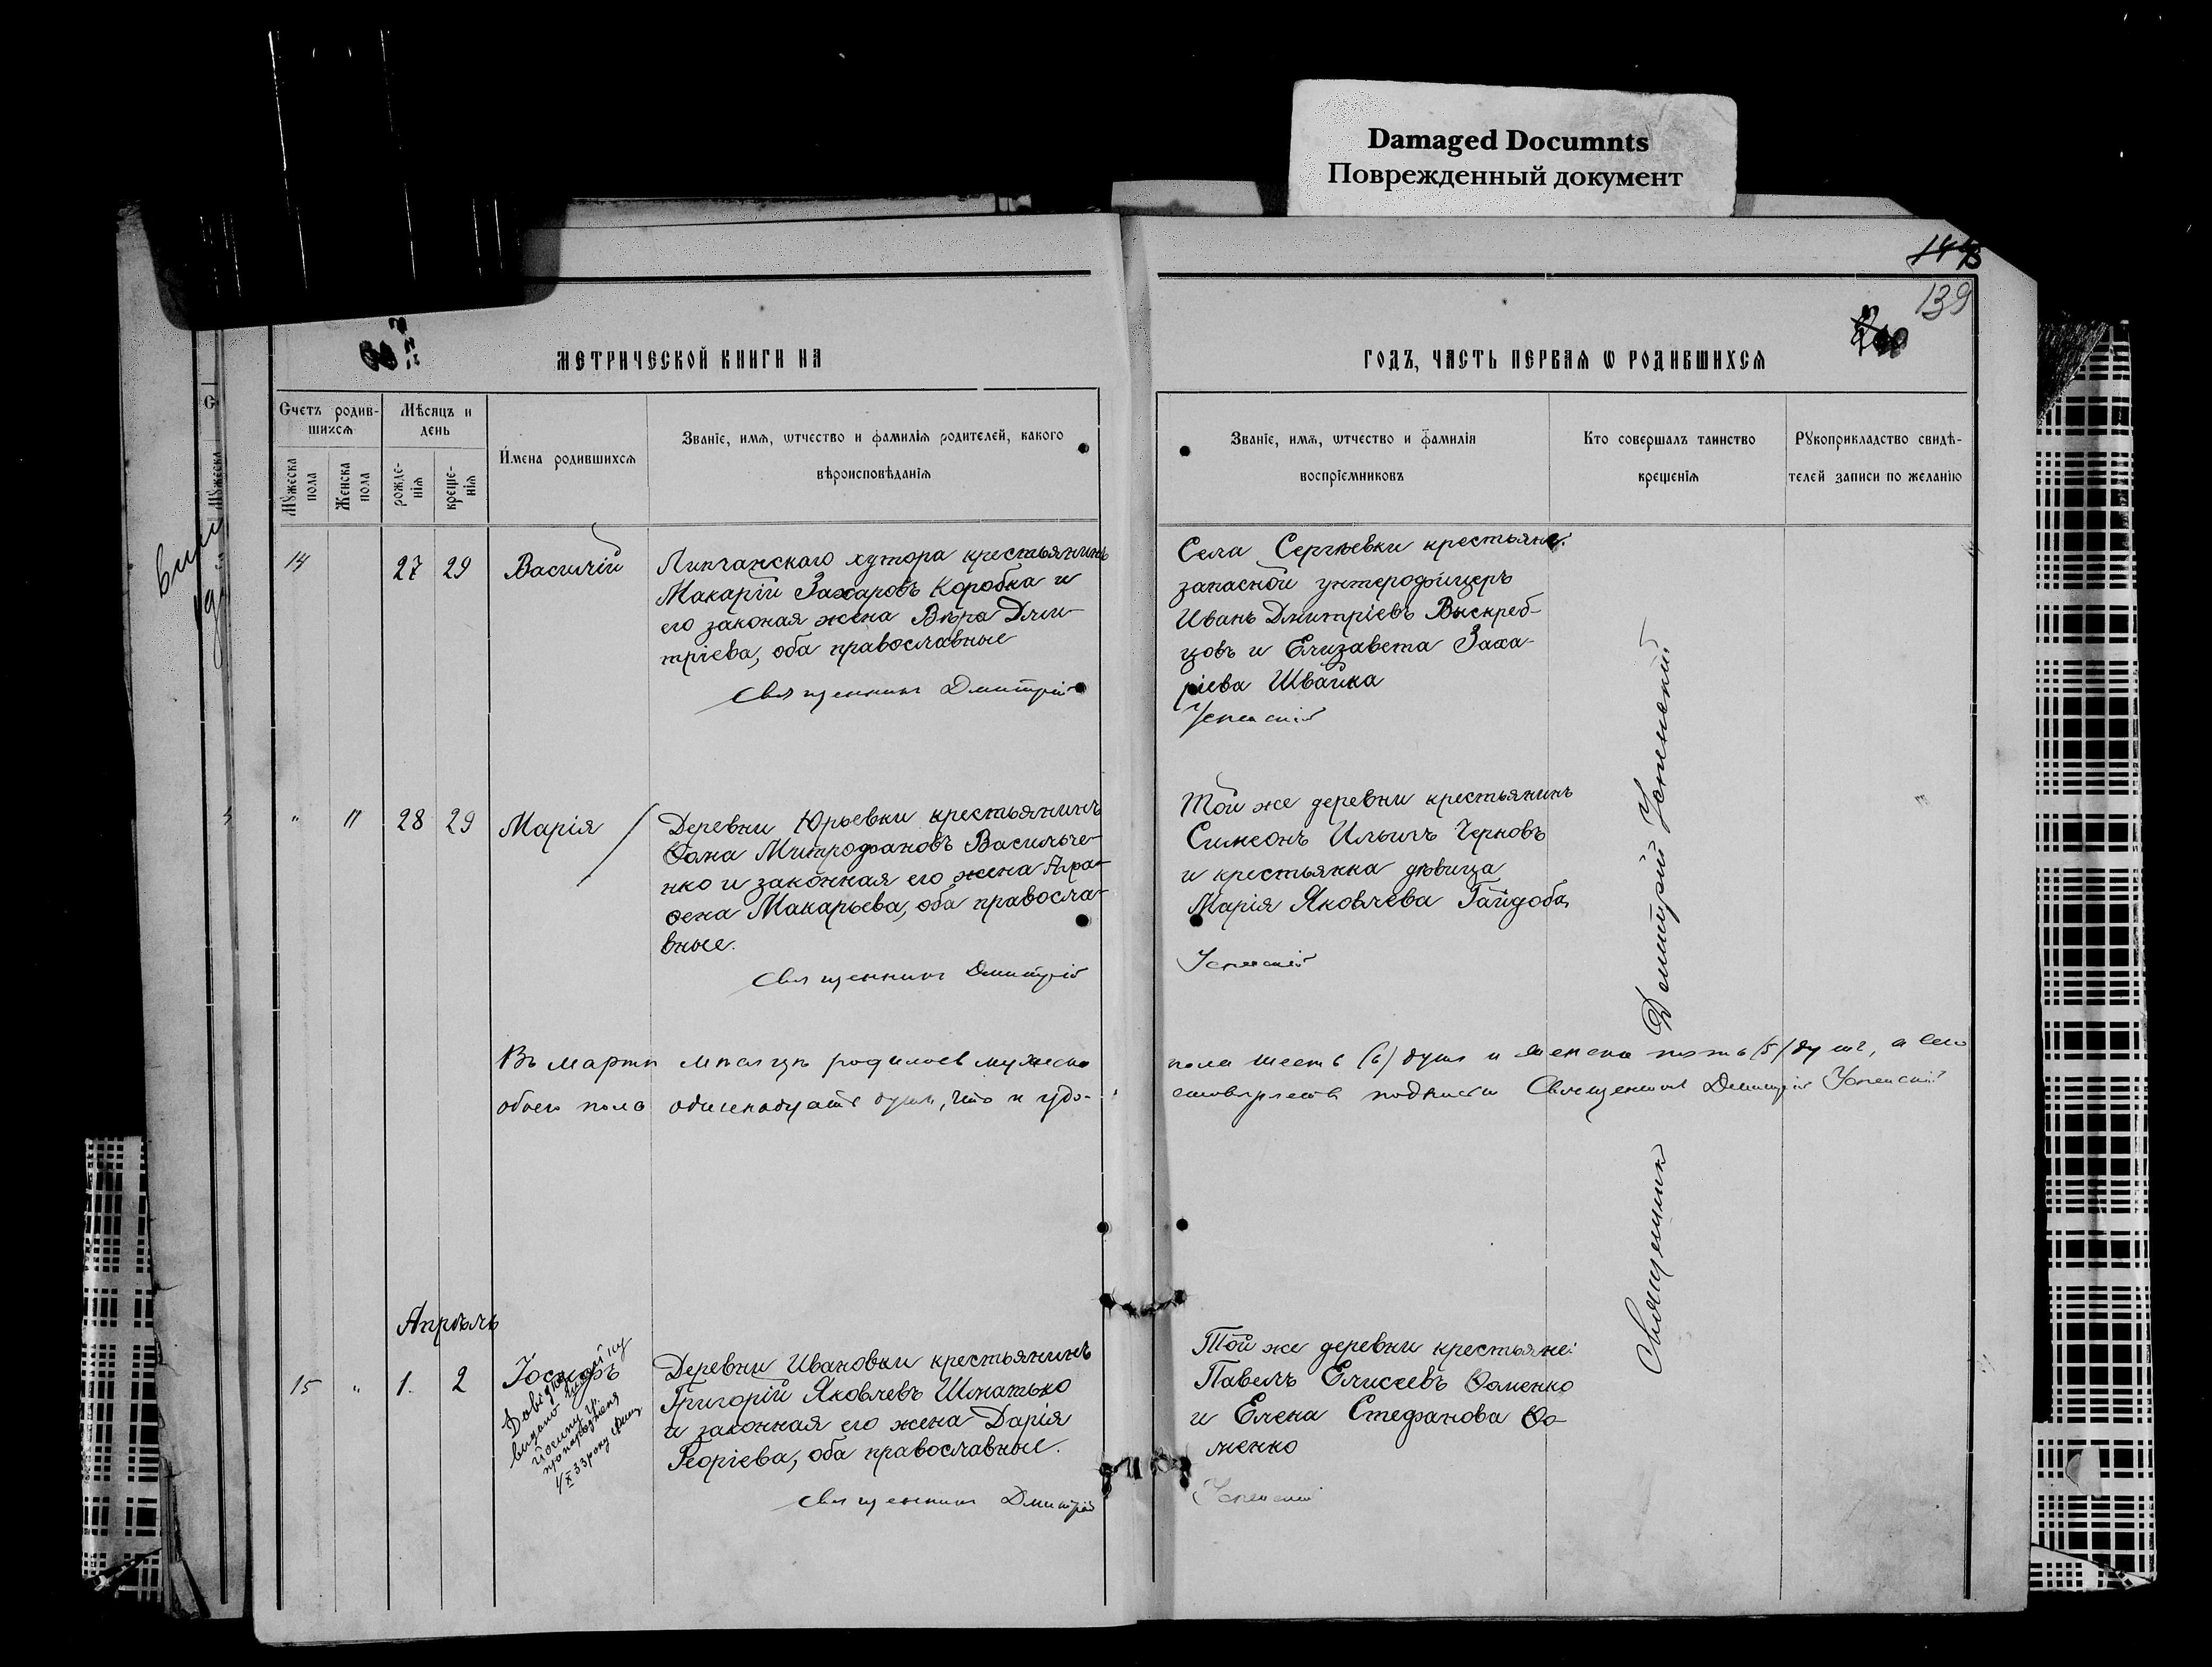 Damaged Documnts
Поврежденный документ
139
МЕТРИЧЕСКОЙ КНИГИ НА
ГОДЪ, ЧАСТЬ ПЕРВАѦ Ѡ РОДИВШИХСѦ
Счетъ родив-
шихсѧ
Мѣсяцъ и
день
Мужеска
пола
Женска
пола
рожде-
нїѧ
креще-
нїѧ
Имена родившихсѧ
Званїе, имѧ, ѿтчество и фамилїѧ родителей, какого
вѣроисповѣданїѧ
Званїе, имѧ, ѿтчество и фамилїѧ
воспрїемниковъ
Кто совершалъ таинство
крещенїѧ
Рукоприкладство свидѣ-
телей записи по желанїю
14
27 29
Василій
Липчанскаго хутора крестьянинъ
Макарій Захаровъ Коробка и
его законая жена Вѣра Дми-
тріева, оба православные
Священникъ Дмитрій
Села Сергѣевки крестьяне:
запасной унтерофицеръ
Иванъ Дмитріевъ Выскреб-
цовъ и Елизавета Заха-
ріева Швайка
Успенскій
" 11 28 29
Марія
Деревни Юрьевки крестьянинъ
Ѳома Митрофановъ Васильче-
нко и законная его жена
Макарьева, оба правосла-
вные.
Священникъ Дмитрій
Той же деревни крестьянинъ
Симеонъ Ильичъ Черновъ
и крестьянка дѣвица
Марія Яковлева
Успенскій
Въ мартѣ мѣсяцѣ родилось мужеска
обоего пола одиннадцать душъ, что и удо-
пола шесть (6) душъ и женска пять (5) душъ, а всего
стовѣряетъ подписью Священникъ Дмитрій Успенскій
Священникъ Дмитрій Успенскій
Апрѣль
15 " 1. 2
Іосифъ
видано
Деревни Ивановки крестьянинъ
Григорій Яковлевъ Шматько
и законная его жена Дарія
Георгіева, оба православные.
Священникъ Дмитрій
Той же деревни крестьяне:
Павелъ Елисеевъ Ѳоменко
и Елена Стефанова Ѳо-
менко
Успенскій